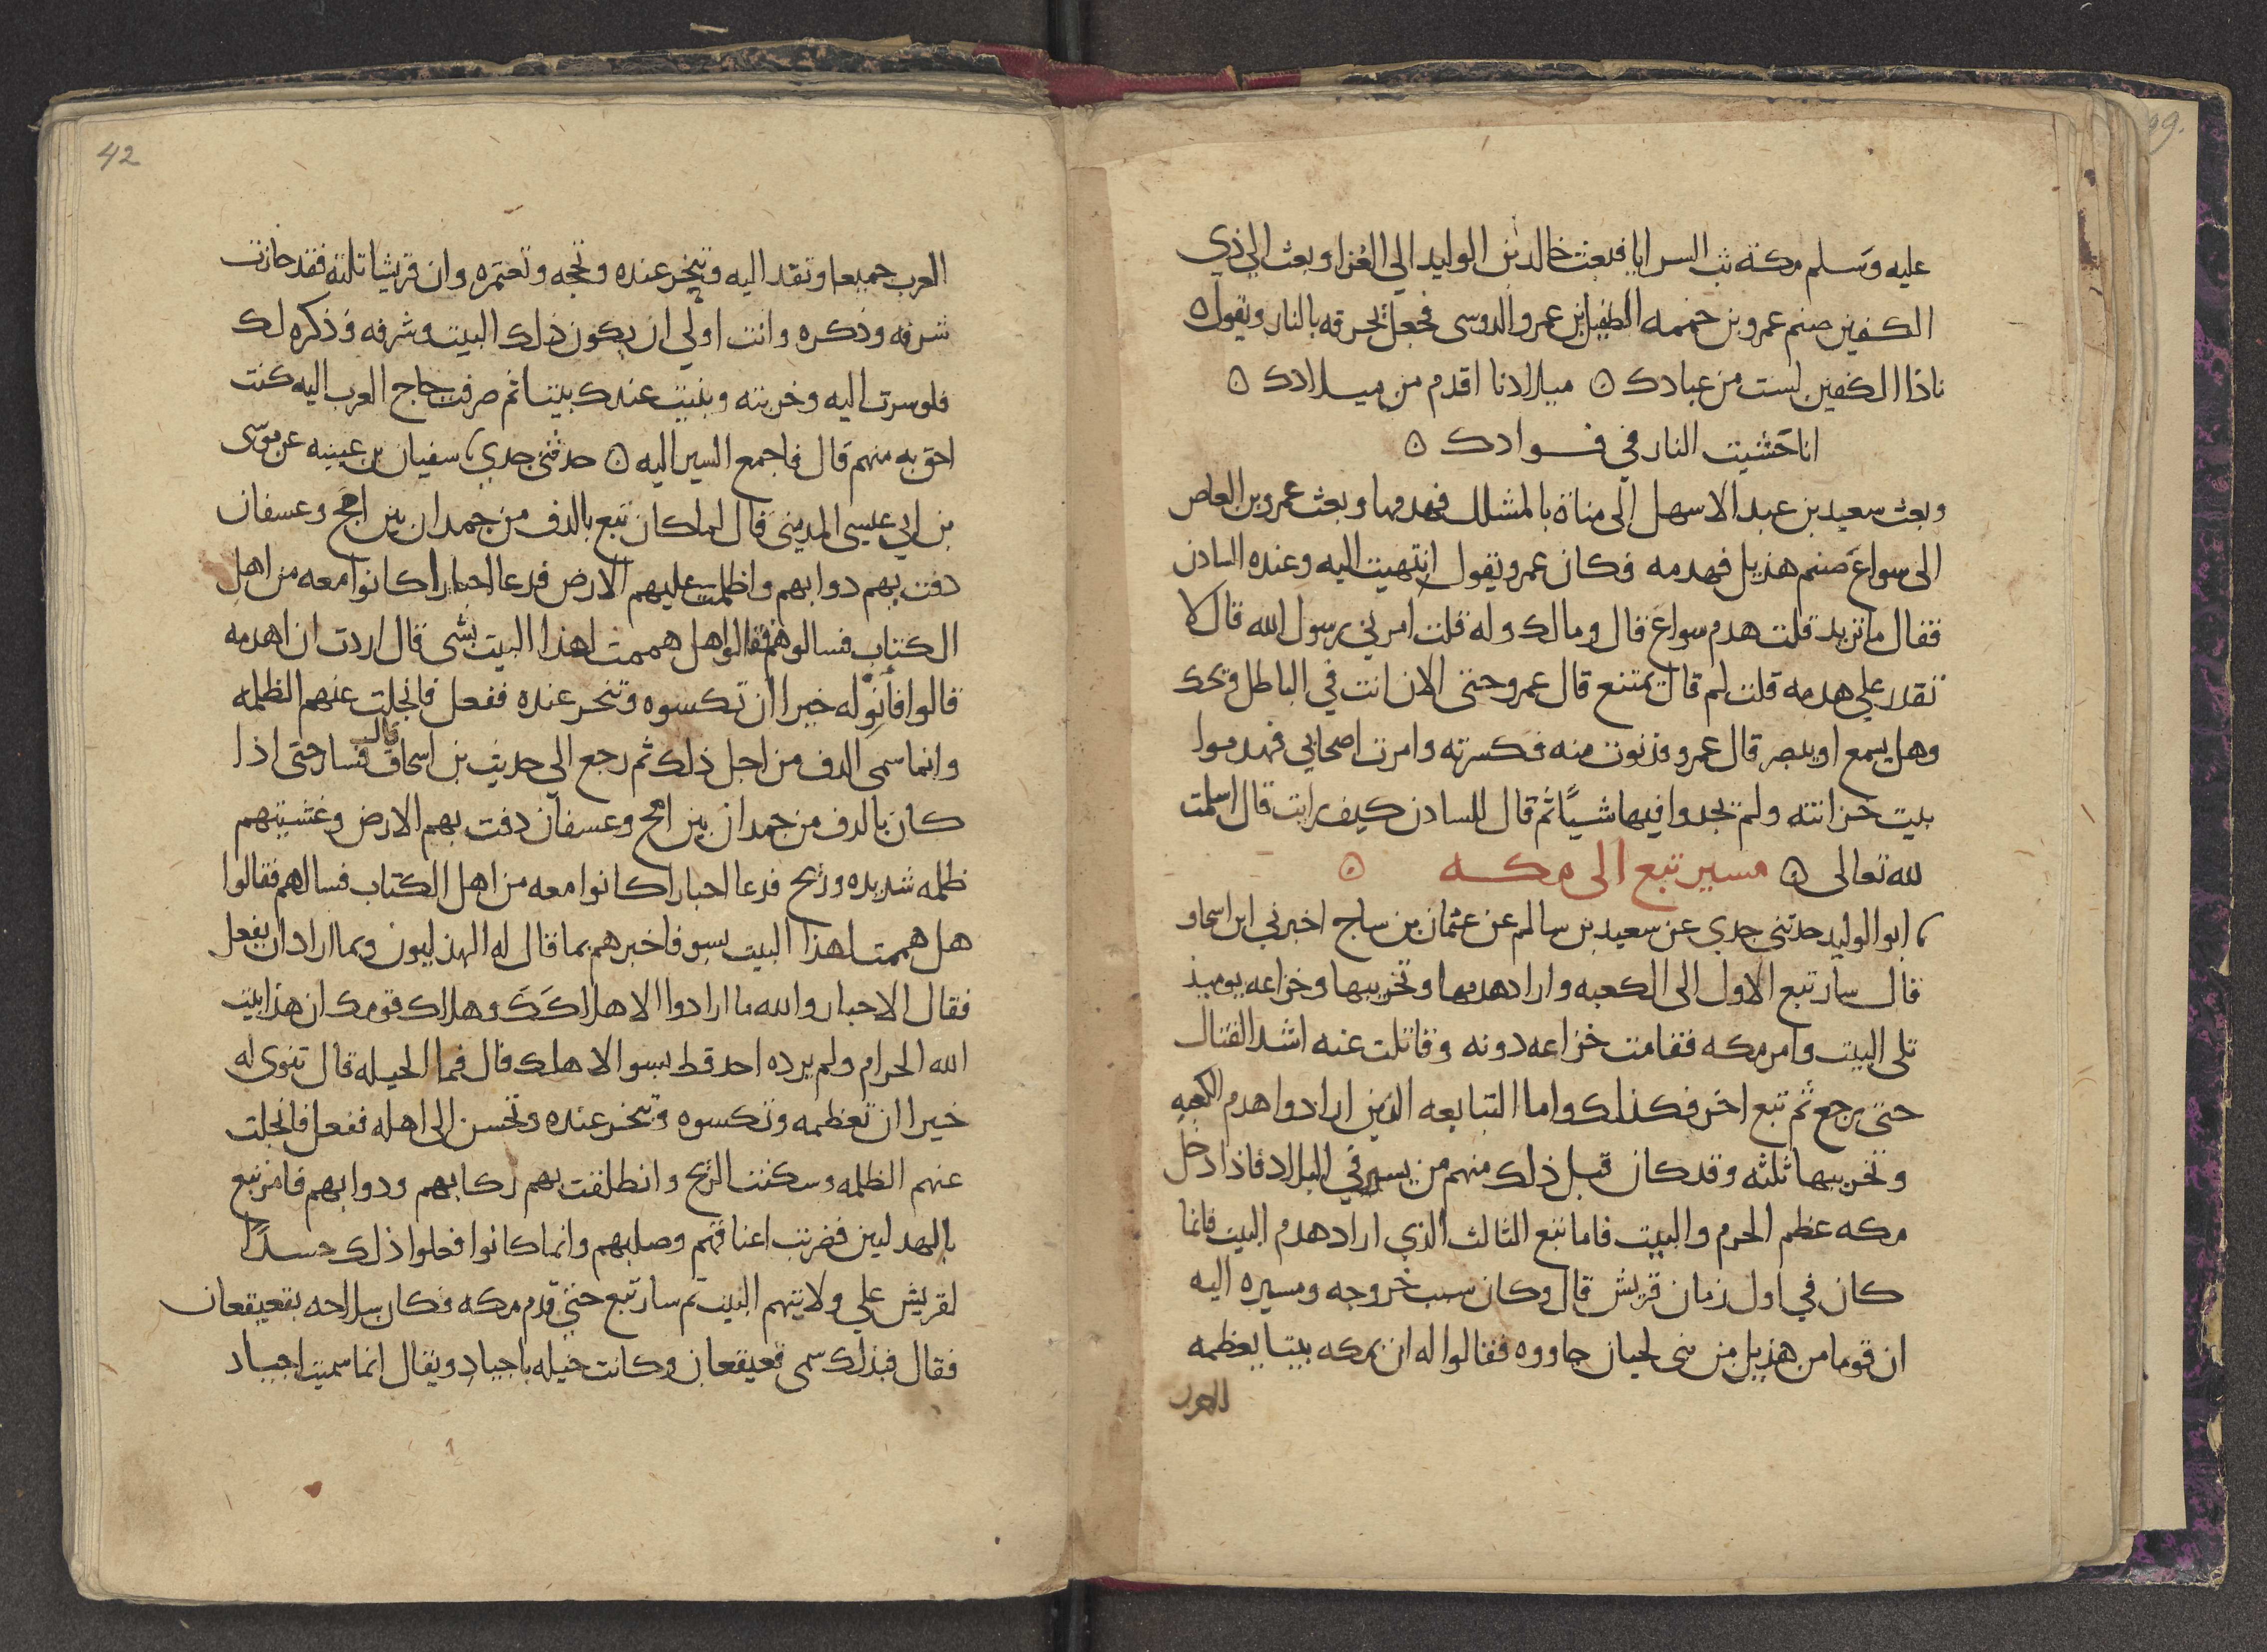 عليه وسلم مكة بث السرايا فبعث خالد بن الوليد الى العزا وبعث الي ذي
الكفين صنم عمرو بن حممه الطفيل بن عمرو الدوسى فجعل يحرقه بالنار ويقول ه
ياذا الكفين لست من عبادك ه ميلادنا اقدم من ميلادك ه
انا حشيت النار في فوادك ه
وبعث سعيد بن عبد الاسهل الى مناة بالمشلل فهدمها وبعث عمرو بن العاص
الى سواع صنم هذيل فهدمه فكان عمرو يقول انتهيت اليه وعنده السادن
فقال ما تريد قلت هدم سواع قال ومالك وله قلت امرني رسول الله قال لا
تقدر علي هدمه قلت لم قال يمتنع قال عمرو حتى الان انت في الباطل ويحك
وهل يسمع او يبصر قال عمرو فدنوت منه فكسرته وامرت اصحابي فهدموا
بيت خزانته ولم يجدوا فيها شيًا ثم قال للسادن كيف رايت قال اسلمت
لله تعالى ه مسير تبع الى مكه ه
ابو الوليد حدثني جدي عن سعيد بن سالم عن عثمان بن ساج اخبرني ابن اسحاق
قال سار تبع الاول الى الكعبه واراد هدمها وتخريبها وخزاعه يوميذ
تلى البيت وامر مكه فقامت خزاعه دونه وقاتلت عنه اشد القتال
حتى رجع ثم تبع اخر فكذلك واما التبابعه الذين ارادوا هدم الكعبه
وتخريبها ثلثه وقد كان قبل ذلك منهم من يسير في البلاد فاذا دخل
مكه عظم الحرم والبيت فاما تبع الثالث الذي اراد هدم البيت فانما
كان في اول زمان قريش قال وكان سبب خروجه ومسيره اليه
ان قوما من هذيل من بنى لحيان جاووه فقالوا له ان بمكه بيتا يعظمه
العرب
42
العرب جميعا وتفد اليه وتنحر عنده وتحجه وتعتمره وان قريشا تلته فقد حازت
شرفه وذكره وانت اولي ان يكون ذلك البيت وشرفه وذكره لك
فلو سرت اليه وخربته وبنيت عندك بيتا ثم صرفت حاج العرب اليه كنت
احق به منهم قال فاجمع السير اليه ه حدثني جدي سفيان بن عيينه عن موسى
بن ابي عيسى المديني قال لما كان تبع بالدف من جمدان بين امج وعسفان
دفت بهم دوابهم واظلمت عليهم الارض فدعا احبارا كانوا معه من اهل
الكتاب فسالوهم فقالوا هل هممت لهذا البيت بشى قال اردت ان اهدمه
قالوا فانو له خيرا ان تكسوه وتنحر عنده ففعل فانجلت عنهم الظلمه
وانما سمى الدف من اجل ذلك ثم رجع الي حديث بن اسحاق قال فسار حتى اذا
كان بالدف من جمدان بين امج وعسفان دفت بهم الارض وغشيتهم
ظلمه شديده وريح فدعا احبارا كانوا معه من اهل الكتاب فسالهم فقالوا
هل هممت لهذا البيت بسو فاخبرهم بما قال له الهذليون وبما اراد ان يفعل
فقال الاحبار والله ما ارادوا الا هلاكك وهلاك قومك ان هذا بيت
الله الحرام ولم يرده احد قط بسو الا هلك قال فما الحيله قال تنوى له
خيرا ان تعظمه وتكسوه وتنحر عنده وتحسن الى اهله ففعل فانجلت
عنهم الظلمه وسكنت الريح وانطلقت بهم ركابهم ودوابهم فامر تبع
بالهدليين فضربت اعناقهم وصلبهم وانما كانوا فعلوا ذلك حسدًا
لقريش علي ولايتهم البيت ثم سار تبع حتى قدم مكه فكان سلاحه بقعيقعان
فقال فبذلك سمى قعيقعان وكانت خيله باجياد ويقال انما سميت اجياد